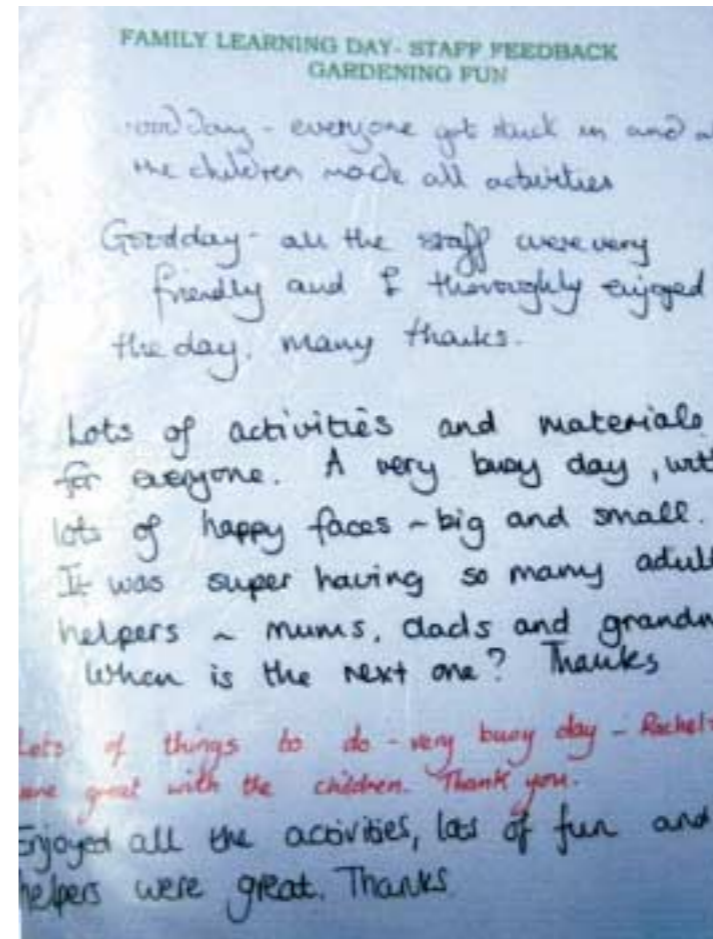 FAMILY LEARNING DAY- STAFF FEEDBACK
GARDENING FUN
day - everyone got stuck in and
the children made all activities
Good day - all the staff were very
friendly and I thoroughly enjoyed
the day. many thanks.
Lots of activities and materials
for everyone. A very busy day, with
lots of happy faces ~ big and small.
It was super having so many adult
helpers ~ mums, dads and
When is the next one? Thanks
Lots of things to do - very busy day - Rachel
great with the children. Thank you.
Enjoyed all the activities, lots of fun and
helpers were great. Thanks